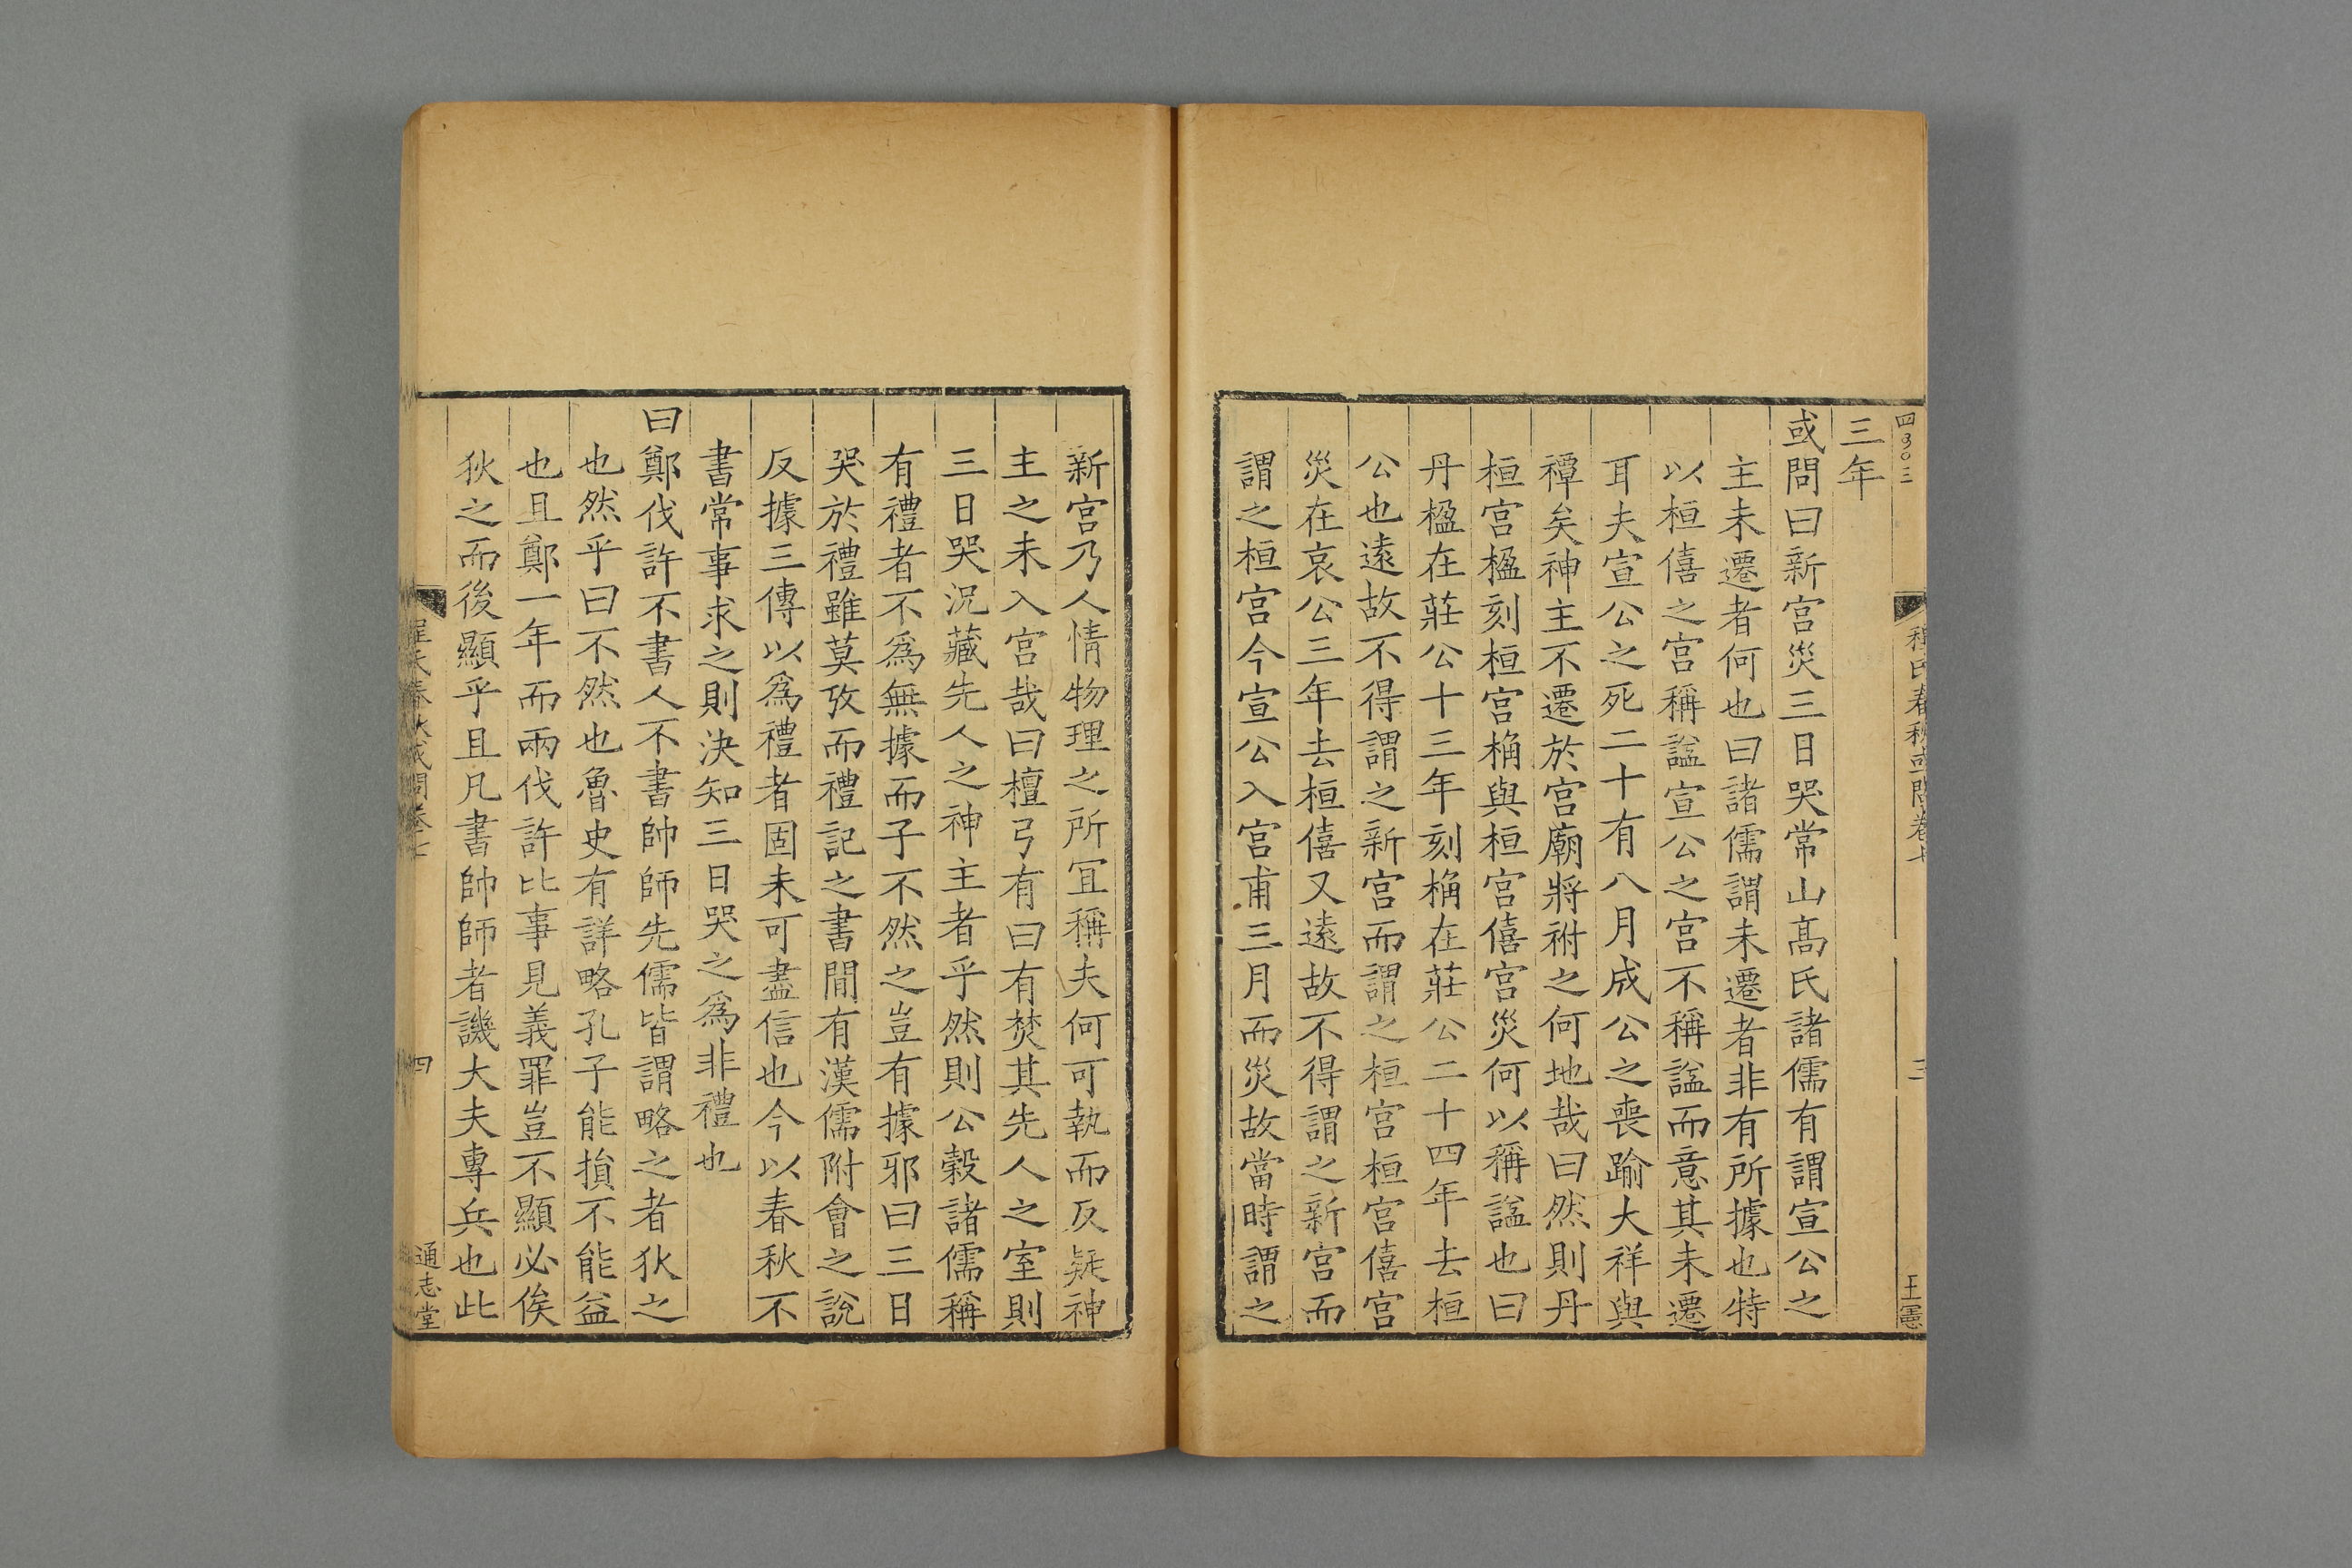 三年
或問曰新宫災三日哭常山髙氏諸儒有謂宣公之
主未遷者何也曰諸儒謂未遷者非有所據也特
以桓僖之宫稱謚宣公之宫不稱謚而意其未遷
耳夫宣公之死二十有八月成公之喪踰大祥與
禫矣神主不遷於宫廟將祔之何地哉曰然則丹
桓宫楹刻桓宫桷與桓宫僖宫災何以稱謚也曰
丹楹在莊公十三年刻桷在莊公二十四年去桓
公也逺故不得謂之新宫而謂之桓宫桓宫僖宫
災在哀公三年去桓僖又逺故不得謂之新宫而
謂之桓宫今宣公入宫甫三月而災故當時謂之
新宫乃人情物理之所冝稱夫何可執而反疑神
主之未入宫哉曰檀弓有曰有焚其先人之室則
三日哭况藏先人之神主者乎然則公榖諸儒稱
有禮者不爲無據而子不然之豈有據邪曰三日
哭於禮雖莫攷而禮記之書間有漢儒附會之說
反據三傳以爲禮者固未可盡信也今以春秋不
書常事求之則決知三日哭之爲非禮也
曰鄭伐許不書人不書帥師先儒皆謂略之者狄之
也然乎曰不然也魯史有詳略孔子能損不能益
也且鄭一年而兩伐許比事見義罪豈不顯必俟
狄之而後顯乎且凡書帥師者譏大夫專兵也此
四
通志堂